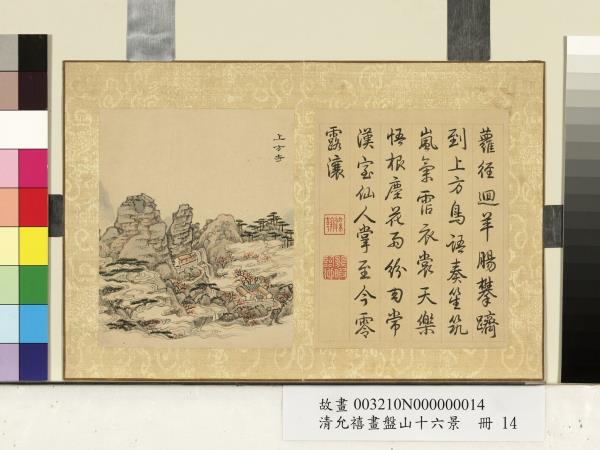 上方寺
蘿徑迴羊腸攀躋
到上方鳥語奏笙筑
嵐氣霑衣裳天樂
悟根塵花雨紛常
漢室仙人掌至今零
露瀼
故畫 003210N000000014
清允禧畫盤山十六景 冊 14